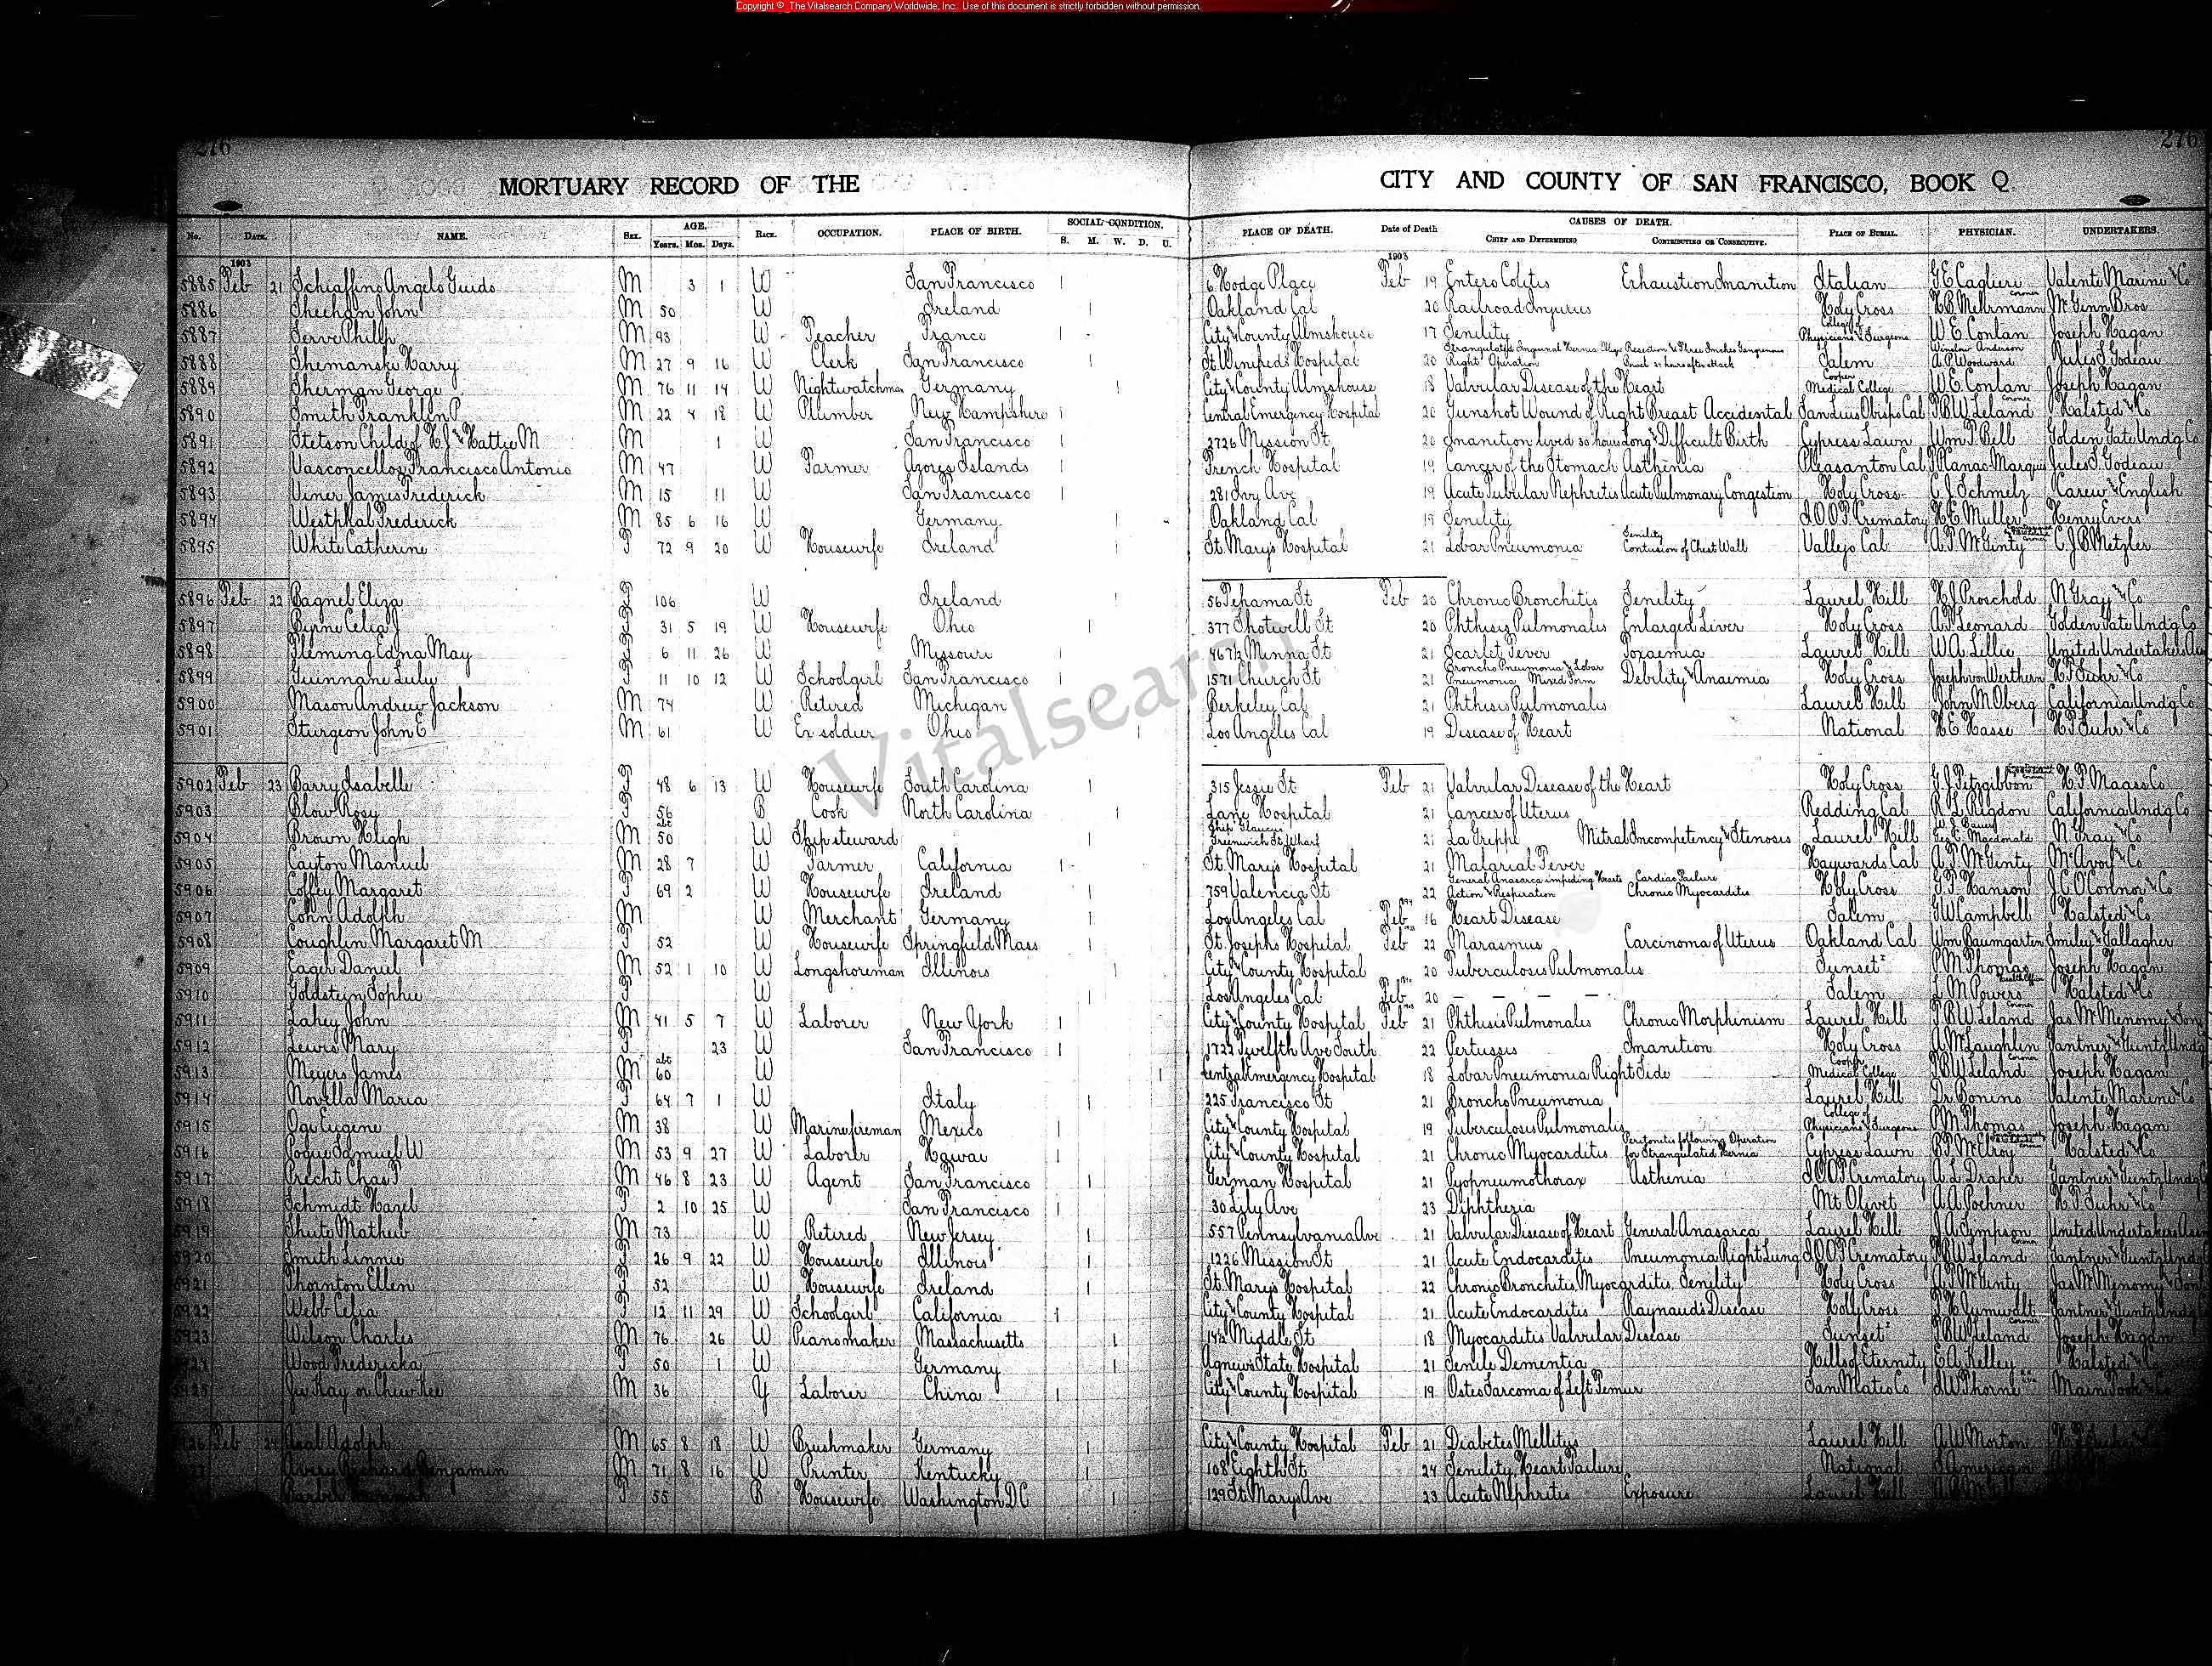 Copyright © The Vitalsearch Company Worldwide, Inc. Use of this document is strictly forbidden without permission.
276 276
MORTUARY RECORD OF THE CITY AND COUNTY OF SAN FRANCISCO, BOOK Q.
No. DATE. NAME. SEX. AGE. Years. Mos. Days. RACE. OCCUPATION. PLACE OF BIRTH. SOCIAL CONDITION. S. M. W. D. U. PLACE OF DEATH. Date of Death CAUSES OF DEATH. CHIEF AND DETERMINING CONTRIBUTING OR CONSECUTIVE. PLACE OF BURIAL. PHYSICIAN. UNDERTAKERS.
1903 1903
5885 Feb 21 Schiaffino Angelo Guido M 3 1 W San Francisco 1 6 Hodge Place Feb 19 Entero Colitis Exhaustion Inanition Italian G E Caglieri Valente Marini & Co
5886 Sheehan John M 50 W Ireland 1 Oakland Cal 20 Railroad Injuries Holy Cross H B Mehrmann Coroner McGinn Bros
5887 Serve Philip M 93 W Teacher France 1 City & County Almshouse 17 Senility College of Physicians & Surgeons W E Conlan Joseph Hagan
5888 Shemanski Harry M 27 9 16 W Clerk San Francisco 1 St Winifred's Hospital 20 Strangulated Inguinal Hernia Right Operation Salem Winslow Anderson A P Woodward Jules S Godeau
5889 Sherman George M 76 11 14 W Nightwatchman Germany 1 City & County Almshouse 18 Valvular Disease of the Heart Cooper Medical College W E Conlan Joseph Hagan
5890 Smith Franklin P M 22 4 18 W Plumber New Hampshire 1 Central Emergency Hospital 20 Gunshot Wound of Right Breast Accidental San Luis Obispo Cal T B W Leland Coroner Halsted & Co
5891 Stetson Child of H J & Hattie M M 1 W San Francisco 1 2726 Mission St 20 Inanition lived 30 hours Long & Difficult Birth Cypress Lawn Wm T Bell Golden Gate Undg Co
5892 Vasconcellos Francisco Antonio M 47 W Farmer Azores Islands 1 French Hospital 19 Cancer of the Stomach Asthenia Pleasanton Cal Jules S Godeau
5893 Viner James Frederick M 15 11 W San Francisco 1 281 Ivy Ave 19 Acute Tubular Nephritis Acute Pulmonary Congestion Holy Cross C J Schmelz Carew & English
5894 Westphal Frederick M 85 6 16 W Germany 1 Oakland Cal 19 Senility I.O.O.F. Crematory H E Muller Henry Evers
5895 White Catherine F 72 9 20 W Housewife Ireland 1 St Mary's Hospital 21 Lobar Pneumonia Senility Contusion of Chest Wall Vallejo Cal A F McGinty C J B Metzler
5896 Feb 22 Bagnel Eliza F 106 W Ireland 1 56 Tehama St Feb 20 Chronic Bronchitis Senility Laurel Hill H J Proschold N Gray & Co
5897 Byrne Celia J F 31 5 19 W Housewife Ohio 1 377 Shotwell St 20 Phthisis Pulmonalis Enlarged Liver Holy Cross A F Leonard Golden Gate Undg Co
5898 Fleming Edna May F 6 11 26 W Missouri 1 467½ Minna St 21 Scarlet Fever Toxaemia Laurel Hill W A Lillie United Undertakers
5899 Guinnane Luly F 11 10 12 W Schoolgirl San Francisco 1 1571 Church St 21 Broncho Pneumonia & Lobar Pneumonia Mixed Form Debility & Anaemia Holy Cross Joseph von Werthern H F Suhr & Co
5900 Mason Andrew Jackson M 74 W Retired Michigan 1 Berkeley Cal 21 Phthisis Pulmonalis Laurel Hill John M Oberg California Undg Co
5901 Sturgeon John E M 61 W Ex soldier Ohio 1 Los Angeles Cal 19 Disease of Heart National H E Hasse H F Suhr & Co
5902 Feb 23 Barry Isabelle F 48 6 13 W Housewife South Carolina 1 315 Jessie St Feb 21 Valvular Disease of the Heart Holy Cross G J Fitzgibbon H F Maass Co
5903 Blow Rosy F 56 B Cook North Carolina 1 Lane Hospital 21 Cancer of Uterus Redding Cal R L Rigdon California Undg Co
5904 Brown Hugh M abt 50 W Ship steward 1 Ship Glaucus Greenwich St Wharf 21 La Grippe Mitral Incompetency & Stenosis Laurel Hill Macdonald N Gray & Co
5905 Cayton Manuel M 28 7 W Farmer California 1 St Mary's Hospital 21 Malarial Fever Haywards Cal A F McGinty McAvoy & Co
5906 Coffey Margaret F 69 2 W Housewife Ireland 1 759 Valencia St 22 General Anasarca impeding Hearts Action & Respiration Cardiac Failure Chronic Myocarditis Holy Cross G F Hanson J C O'Connor & Co
5907 Cohn Adolph M W Merchant Germany 1 Los Angeles Cal Feb 16 Heart Disease Salem G W Campbell Halsted & Co
5908 Coughlin Margaret M F 52 W Housewife Springfield Mass 1 St Josephs Hospital Feb 22 Marasmus Carcinoma of Uterus Oakland Cal Wm Baumgarten Smiley & Gallagher
5909 Eager Daniel M 52 1 10 W Longshoreman Illinois 1 City & County Hospital 20 Tuberculosis Pulmonalis Sunset P M Thomas Joseph Hagan
5910 Goldstein Sophie F W 1 Los Angeles Cal Feb 20 — — — — Salem L M Powers Health Officer Halsted & Co
5911 Lahey John M 41 5 7 W Laborer New York 1 City & County Hospital Feb 21 Phthisis Pulmonales Chronic Morphinism Laurel Hill T B W Leland Coroner Jas McMenomy & Son
5912 Lewis Mary F 23 W San Francisco 1 1722 Twelfth Ave South 22 Pertussis Inanition Holy Cross A McLaughlin Gantner & Guntz Undg
5913 Meyers James M abt 60 W 1 Central Emergency Hospital 18 Lobar Pneumonia Right Side Cooper Medical College T B W Leland Coroner Joseph Hagan
5914 Novella Maria F 64 7 1 W Italy 1 225 Francisco St 21 Broncho Pneumonia Laurel Hill Dr Bonino Valente Marini & Co
5915 Ogi Eugene M 38 W Marine fireman Mexico 1 City & County Hospital 19 Tuberculosis Pulmonalis College of Physicians & Surgeons P M Thomas Joseph Hagan
5916 Pogue Samuel W M 53 9 27 W Laborer Hawai 1 City & County Hospital 21 Chronic Myocarditis Peritonitis following Operation for Strangulated Hernia Cypress Lawn McElroy Halsted & Co
5917 Precht Chas F M 46 8 23 W Agent San Francisco 1 German Hospital 21 Pyopneumothorax Asthenia I.O.O.F. Crematory A L Draper Gantner & Guntz Undg
5918 Schmidt Hazel F 2 10 25 W San Francisco 1 30 Lily Ave 23 Diphtheria Mt Olivet A A Pochner H F Suhr & Co
5919 Shute Mathew M 73 W Retired New Jersey 1 557 Pennsylvania Ave 21 Valvular Disease of Heart General Anasarca Laurel Hill J A Simpson United Undertakers Assn
5920 Smith Linnie F 26 9 22 W Housewife Illinois 1 1226 Mission St 21 Acute Endocarditis Pneumonia Right Lung I.O.O.F. Crematory T B W Leland Coroner Gantner & Guntz Undg
5921 Thornton Ellen F 52 W Housewife Ireland 1 St Mary's Hospital 22 Chronic Bronchitis, Myocarditis, Senility Holy Cross A F McGinty Jas McMenomy & Son
5922 Webb Celia F 12 11 29 W Schoolgirl California 1 City & County Hospital 21 Acute Endocarditis Raynauds Disease Holy Cross F H Zumwalt Gantner & Guntz Undg
5923 Wilson Charles M 76 26 W Pianomaker Massachusetts 1 14½ Middle St 18 Myocarditis Valvular Disease Sunset T B W Leland Coroner Joseph Hagan
Wood Fredericka F 50 1 W Germany 1 Agnews State Hospital 21 Senile Dementia Hills of Eternity E A Kelley Halsted & Co
5925 Ju Kay or Chew Kee M 36 Y Laborer China 1 City & County Hospital 19 Osteo Sarcoma of Left Femur San Mateo Co J W Thorne
Feb Adolph M 65 8 18 W Brushmaker Germany 1 City & County Hospital Feb 21 Diabetes Mellitus Laurel Hill A W Morton
Avery Richard Benjamin M 71 8 16 W Printer Kentucky 1 108 Eighth St 24 Senility, Heart Failure National
F 55 B Housewife Washington D C 1 129 St Marys Ave 23 Acute Nephritis Exposure Laurel Hill
Vitalsearch